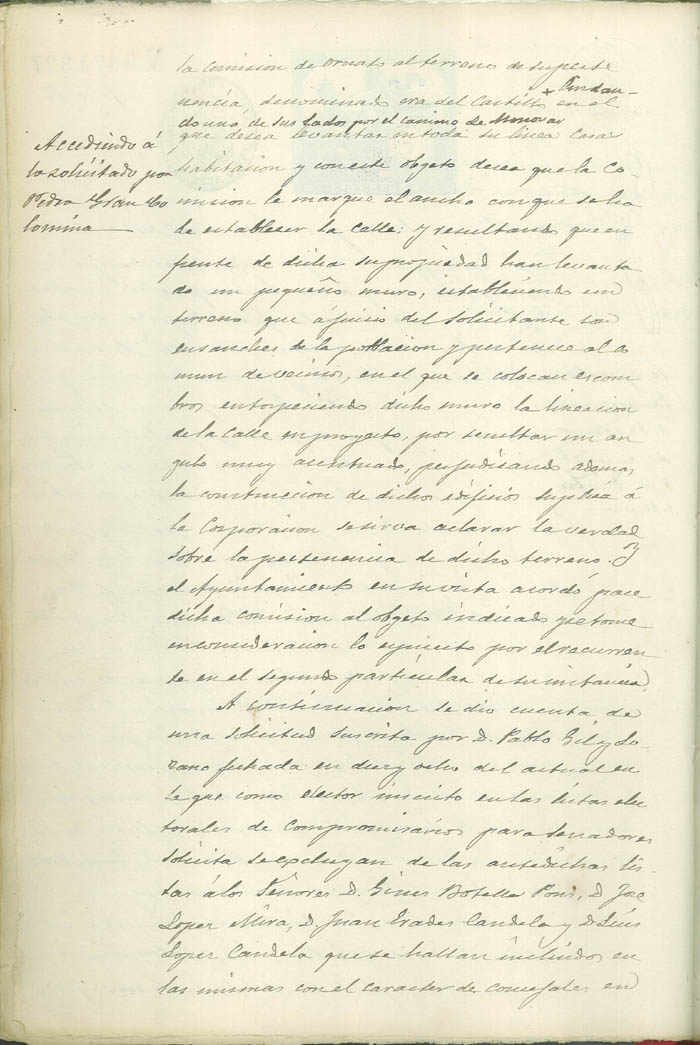 la comision de ornato al terreno de su perte
nencia, denominado era del Castillo + lindan-
en el
do uno de sus lados por el camino de Monovar
que desea levantar en toda su linea Casas
Accediendo á
lo solicitado por
Pedro Gran Co
lomina
habitacion y con este objeto desea que la Co-
mision le marque el ancho con que se ha
de establecer la Calle; y resultando que en
frente de dicha su propiedad han levanta
do un pequeño muro, estableciendo un
terreno que á juicio del solicitante son
ensanches de la poblacion y pertenece al co
mun de vecinos, en el que se colocan escom
bros entorpeciendo dicho muro la lineacion
de la Calle en proyecto, por resultar un an
gulo muy acentuado, perjudicando ademas
la construccion de dichos edificios suplica á
la Corporacion se sirva aclarar la verdad
sobre la pertenencia de dicho terreno. Y
el Ayuntamiento en su vista acordó pase
dicha comision al objeto indicado y se tome
en consideracion lo espuesto por el recurren
te en el segundo particular de su instancia.
A continuacion se dio cuenta de
una solicitud suscrita por D. Pablo Gil y Lo-
zano fechada en diez y ocho del actual en
la que como elector inscrito en las listas elec
torales de Compromisarios para Senadores
solicita se excluyan de las antedichas lis-
tas á los Señores D. Gines Botella Pons, D. Jose
Lopez Mira, D. Juan Prades Candela y D. Luis
Lopez Candela que se hallan incluidos en
las mismas con el caracter de concejales en